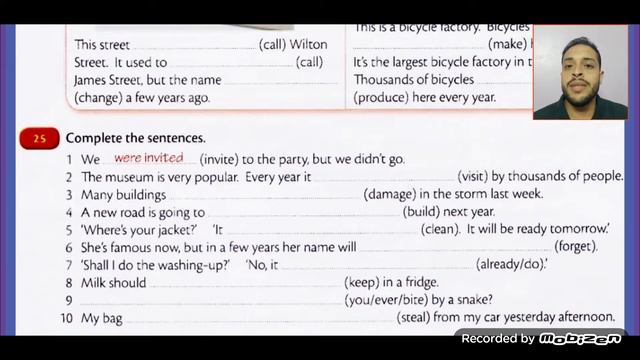 This street (call) Wilton
Street. It used to (call)
James Street, but the name
(change) a few years ago.
This is a bicycle factory. Bicycles
(make)
It's the largest bicycle factory in
Thousands of bicycles
(produce) here every year.
25 Complete the sentences.
1 We were invited (invite) to the party, but we didn't go.
2 The museum is very popular. Every year it (visit) by thousands of people.
3 Many buildings (damage) in the storm last week.
4 A new road is going to (build) next year.
5 'Where's your jacket?' 'It (clean). It will be ready tomorrow.'
6 She's famous now, but in a few years her name will (forget).
7 'Shall I do the washing-up?' 'No, it (already/do).'
8 Milk should (keep) in a fridge.
9 (you/ever/bite) by a snake?
10 My bag (steal) from my car yesterday afternoon.
Recorded by MOBIZEN